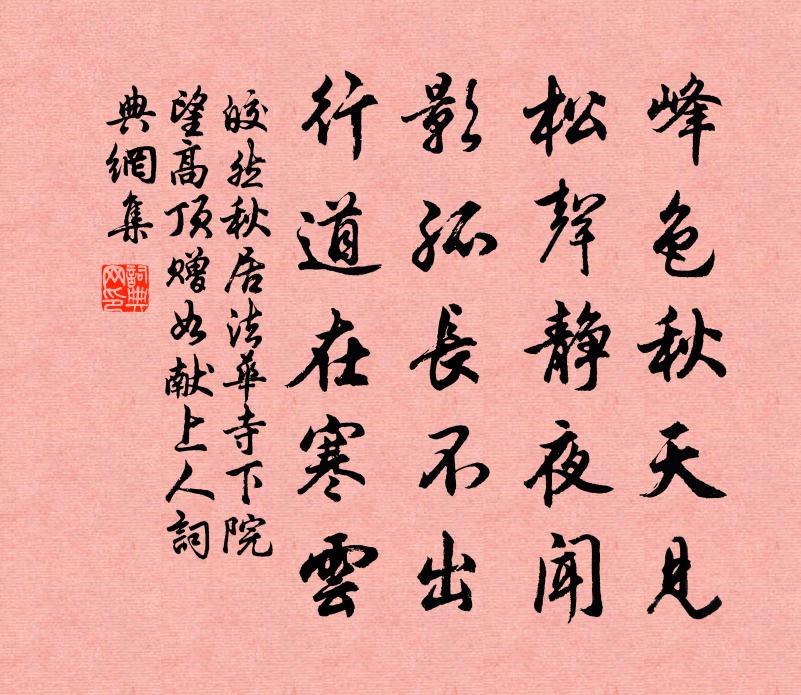 峰色秋天見
松聲靜夜聞
影孤長不出
行道在寒雲
皎然秋居法華寺下院
望高頂贈如献上人詞
典網集
詞典网印